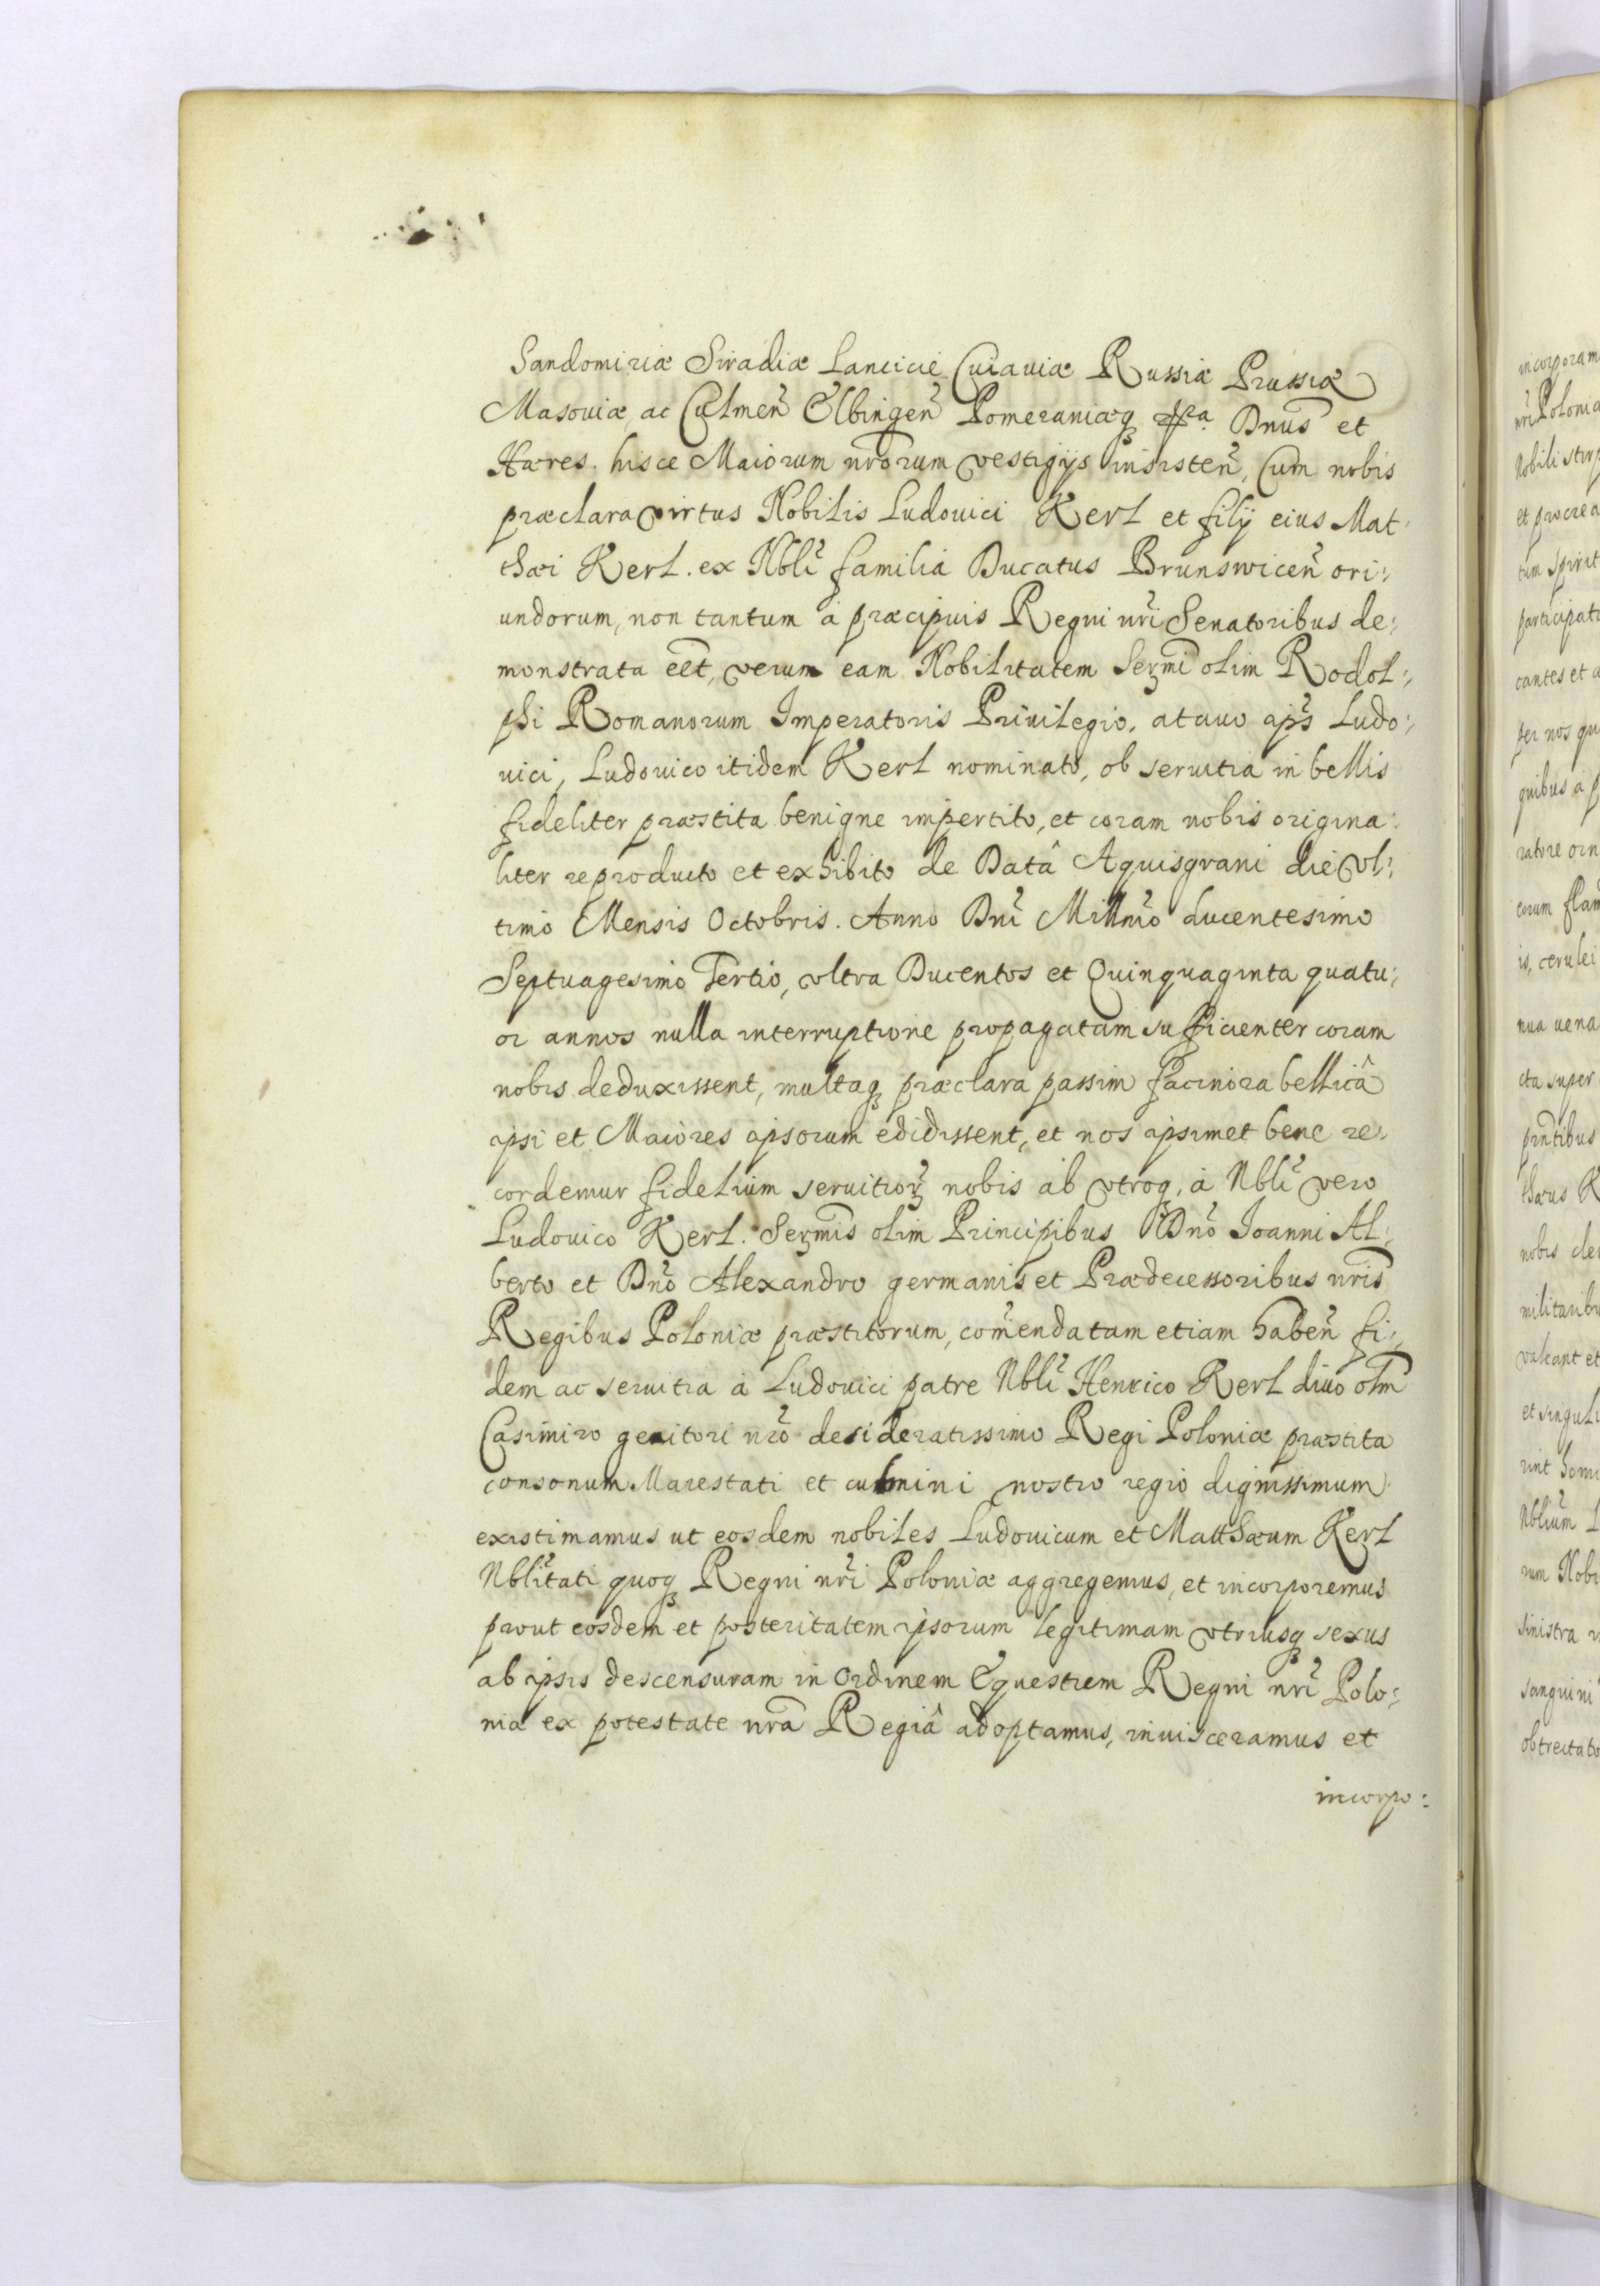 Sandomiriæ Siradiæ Lancicie Cuiaviæ Russiæ Prussiæ
Masouiæ, ac Culmeñ Elbingeñ Pomeraniæq Dnus et
Hæres. hisce Maiorum nrorum vestigijs insisteñ, Cum nobis
præclara virtus Nobilis Ludouici Kerl et filij eius Mat:
thæi Kerl. ex Nbli familia Ducatus Brunswiceñ ori:
undorum, non tantum a præcipuis Regni nri Senatoribus de:
monstrata eet, verum eam Nobilitatem Sermi olim Rodol:
phi Romanorum Imperatoris Priuilegio, atauo ips Ludo:
uici, Ludouico itidem Kerl nominato, ob seruitia in bellis
fideliter præstita benigne impertito, et coram nobis origina:
liter reproducto et exhibito de Datâ Aquisgrani die vl:
timo Mensis Octobris. Anno Dni Millmo ducentesimo
Septuagesimo Tertio, vltra Ducentos et Quinquaginta quatu:
or annos nulla interruptione propagatam sufficienter coram
nobis deduxissent, multaq præclara passim facinora bellicâ
ipsi et Maiores ipsorum edidissent, et nos ipsimet bene re:
cordemur fidelium seruitior nobis ab vtroq, à Nbli vero
Ludouico Kerl. Sermis olim Principibus Dno Ioanni Al:
berto et Dno Alexandro germanis et Prædecessoribus nris
Regibus Poloniæ præstitorum, comendatam etiam habeñ fi:
dem ac seruitia à Ludouici patre Nbli Henrico Kerl diuo olm
Casimiro genitori nro desideratissimo Regi Poloniæ præstita
consonum Maiestati et culmini nostro regio dignissimum
existimamus ut eosdem nobiles Ludouicum et Matthæum Kerl
Nblitati quoq Regni nri Poloniæ aggregemus, et incorporemus
prout eosdem et posteritatem ipsorum legitimam vtriusq sexus
ab ipsis descensuram in Ordinem Equestrem Regni nri Polo:
niæ ex potestate nra Regiâ adoptamus, inuisceramus et
incorpo: